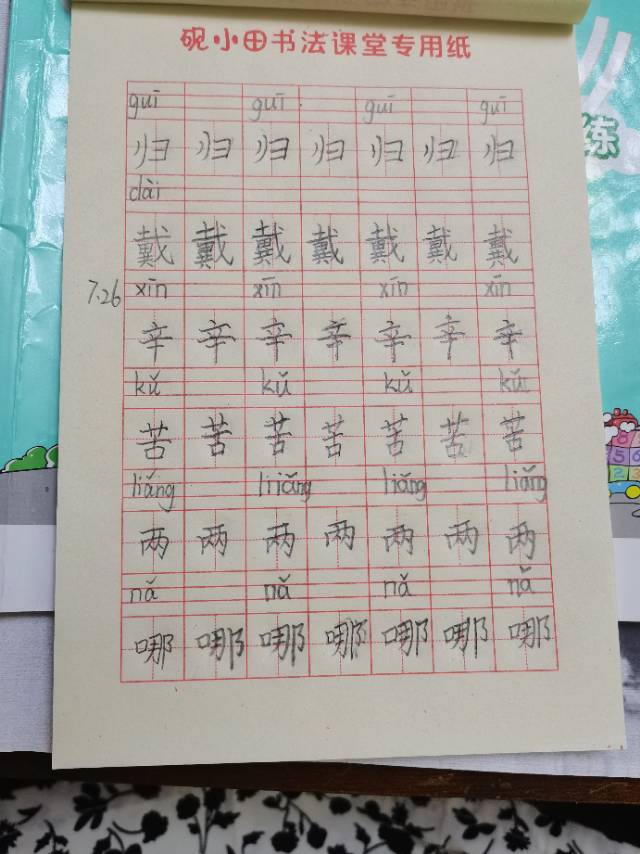 砚小田书法课堂专用纸
guī guī guī guī
归 归 归 归 归 归 归
dài
戴 戴 戴 戴 戴 戴 戴
7.26 xīn xīn xīn xīn
辛 辛 辛 辛 辛 辛 辛
kǔ kǔ kǔ kǔ
苦 苦 苦 苦 苦 苦 苦
liǎng liiǎng liǎng liǎng
两 两 两 两 两 两 两
nǎ nǎ nǎ nǎ
哪 哪 哪 哪 哪 哪 哪
练